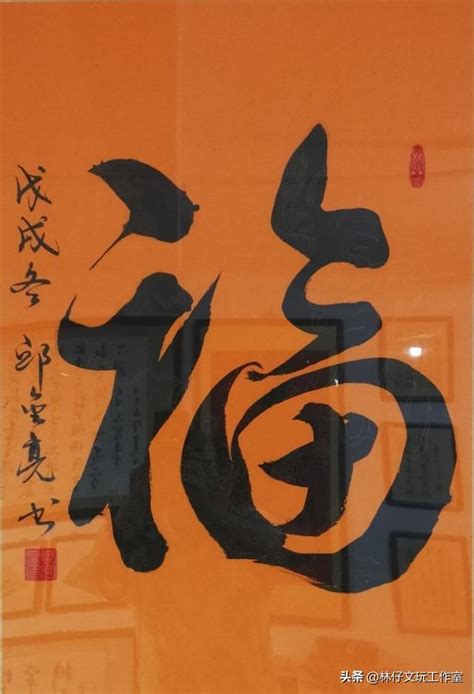 福
戊戌冬邱金亮书
头条@林仔文玩工作室